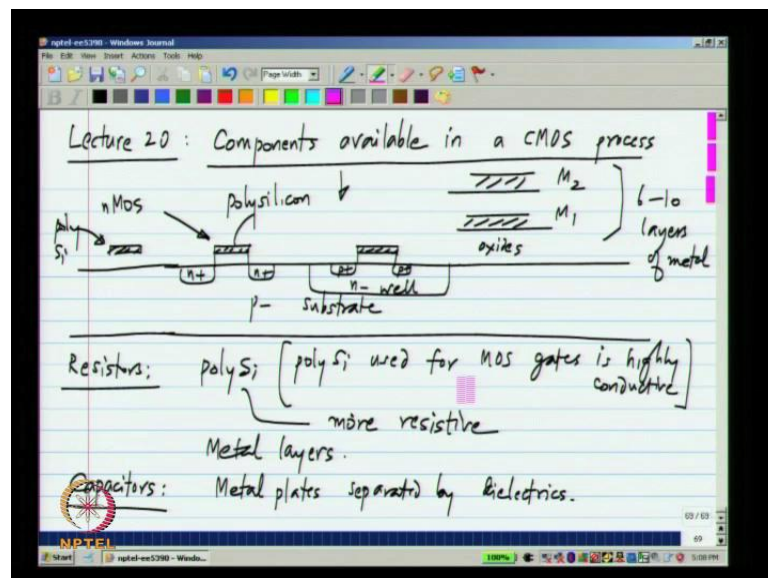 nptel-ee5390 - Windows Journal
File Edit View Insert Actions Tools Help
Page Width
B I
Lecture 20 : Components available in a CMOS process
nMOS polysilicon M2
poly Si M1 6-10 layers of metal
oxides
n+ n+ p+ p+
n- well
p- substrate
Resistors: poly Si [poly Si used for MOS gates is highly conductive]
more resistive
Metal layers.
Capacitors: Metal plates separated by dielectrics.
69 / 69
69
NPTEL
Start nptel-ee5390 - Windo... 100% 5:08 PM